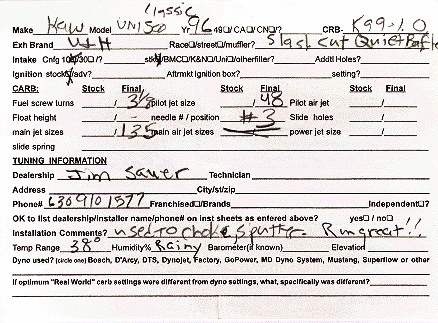 Classic
Make Kaw Model UN1500 Yr 96 49☐/CA☐/CN☐/? CRB- K99-1.0
Exh Brand V&H Race☐/street☐/muffler? Slash Cut Quiet Baffle
Intake Cnfg 10☐/30☐/? stk☐/BMC☐/K&N☐/Uni☐/otherfilter? Addtl Holes?
Ignition stock☐/adv? Aftrmkt Ignition box? setting?
CARB: Stock Final Stock Final Stock Final
Fuel screw turns / 3½ pilot jet size / 48 Pilot air jet /
Float height / - needle # / position / #3 Slide holes /
main jet sizes / 135 main air jet sizes / power jet size /
slide spring
TUNING INFORMATION
Dealership Jim Sauer Technician
Address City/st/zip
Phone# 6309101577 Franchised☐/Brands Independent☐?
OK to list dealership/installer name/phone# on inst sheets as entered above? yes☐ / no☐
Installation Comments? used to choke, sputter. Run great!!
Temp Range 38° Humidity% Rainy Barometer(if known) Elevation
Dyno used? (circle one) Bosch, D'Arcy, DTS, Dynojet, Factory, GoPower, MD Dyno System, Mustang, Superflow or other
If optimum "Real World" carb settings were different from dyno settings, what, specifically was different?